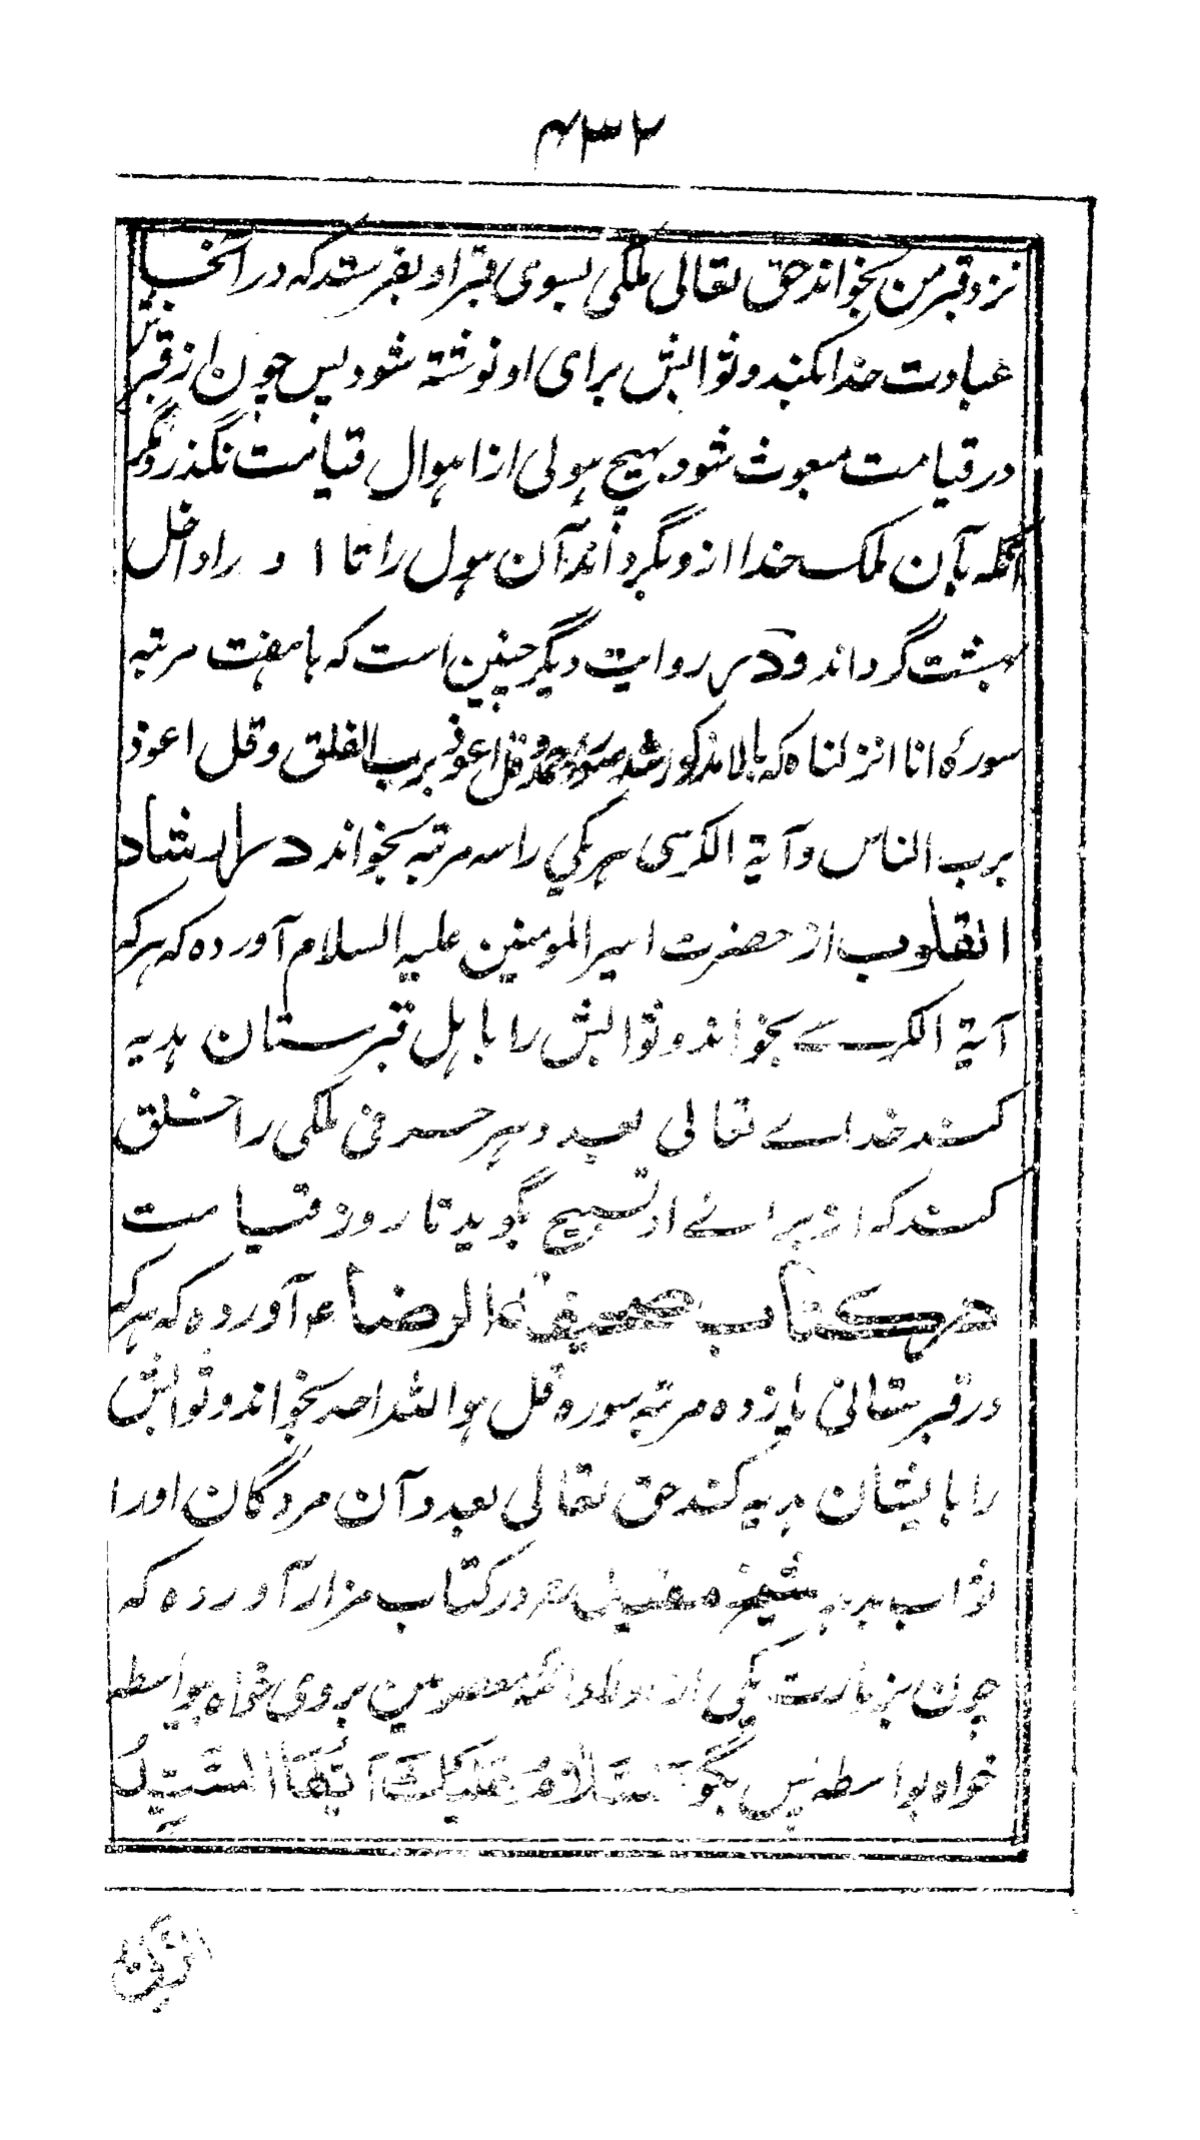 ۴۳۲
نزد قبر من بخواند حق تعالی ملکی بسوی قبر او بفرستد که در آنجا
عبادت خدا بکند و ثوابش برای او نوشته شود پس چون از قبرش
در قیامت مبعوث شود بهیچ هولی از اهوال قیامت نگذرد مگر
آنکه بآن ملک خدا از و بگرداند آن هول را تا ا و را داخل
بهشت گرداند و در روایت دیگر چنین است که با هفت مرتبه
سورهٔ انا انزلناه که بالا مذکور شد سوره حمد و قل اعوذ برب الفلق و قل اعوذ
برب الناس و آیة الکرسی هر یکی را سه مرتبه بخواند در ارشاد
القلوب از حضرت امیر المومنین علیه السلام آورده که هر که
آیة الکرسے بخواند و ثوابش را باہل قبرستان ہدیه
کند خداے تعالی بعدد هر حرفی ملکی را خلق
کند که از براے او تسبیح بگوید تا روز قیامت
در کتاب صحیفة الرضاء آورده که هر که
در قبرستانی یازده مرتبه سوره قل هو الله احد بخواند و ثوابش
را بایشان ہدیه کند حق تعالی بعدد آن مردگان او را
ثواب بدهد شیخ مفید در کتاب مزار آورده که
چون بزیارت یکی از اولاد ائمه معصومین بروی خواه بواسطه
خواه بواسطه پس بگو السَّلَامُ عَلَيْكَ اَيُّهَا السَّيِّدُ